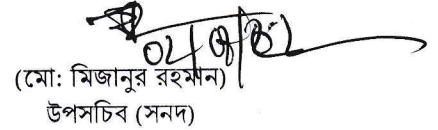 (মো: মিজানুর রহমান)
উপসচিব (সনদ)